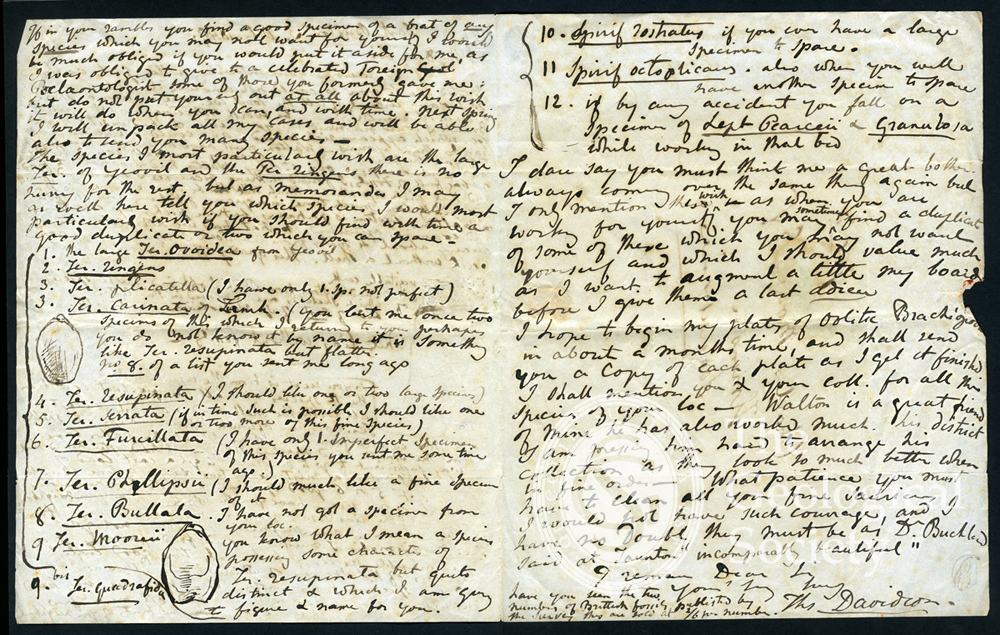 If in your rambles you find a good specimen of a brat of any
species which you may not want for yourself I would
be much obliged if you would put it aside for me as
I was obliged to give to a celebrated Foreign
Palaeontologist some of those you formerly gave me:
but do not put yourself out at all about this wish
it will do when you can and with time. Next Spring
I will unpack all my cases and will be able
also to send you many species —
The species I most particularly wish are the large
Ter. of Yeovil and the Ter ringens there is no
hurry for the rest, but as memoranda I may
as well here tell you which species I would most
particularly wish if you should find with time a
good duplicate or two which you can spare —
1. the large Ter. Ovoidea from Yeovil
2. Ter. ringens
3. Ter. plicatella (I have only 1. sp: not perfect)
3. Ter. Carinata Lamk. (you lent me once two
specims of this which I return to you perhaps
you do not know it by name it is something
like Ter. resupinata but flatter.
no 8. of a list you sent me long ago
4. Ter. resupinata (I should like one or two large species)
5. Ter. Serrata (if in time such is possible I should like one
or two more of this fine species)
6. Ter. Furcillata (I have only 1. imperfect specimen
of this species you sent me some time
ago.)
7. Ter. Phillipsii (I should much like a fine specim
of it
8. Ter. Bullata. I have not got a specim from
your loc.
9 Ter. Mooreii you know what I mean a specis
possessing some characters of
Ter. resupinata but quite
distinct & which I am going
to figure & name for you.
9 bis Ter. Quadrafida
10. Spirif rostratus if you ever have a large
Specimen to spare.
11 Spirif octoplicatus. also when you will
have another specim to spare
12. if by any accident you fall on a
Specimen of Lept Pearceii & Granulosa
while working in that bed
I dare say you must think me a great bother
always coming over the same thing again but
I only mention this wish as when you are
working for yourself you may sometimes find a duplicat
of some of these which you may not want
yourself and which I should value much
as I want to augment a little my board
before I give them a last adieu
I hope to begin my plates of Oolitic Brachiopod
in about a months time, and shall send
you a Copy of each plate as I get it finished
I shall mention you & your coll. for all the
species of your loc — Walton is a great friend
of mine he has also worked much. this district
I am pressing him hard to arrange his
collection as they look so much better when
in fine order — What patience you must
have to clean all your fine Saurians I
I would not have such courage, and I
have no Doubt, they must be as Dr. Buckland
said at Taunton "incomparably beautiful"
I remain Dear Sir
Yours truly
Ths Davidson.
have you seen the two
numbers of British fossils published by
the Survey they are sold at 2/6 per number.